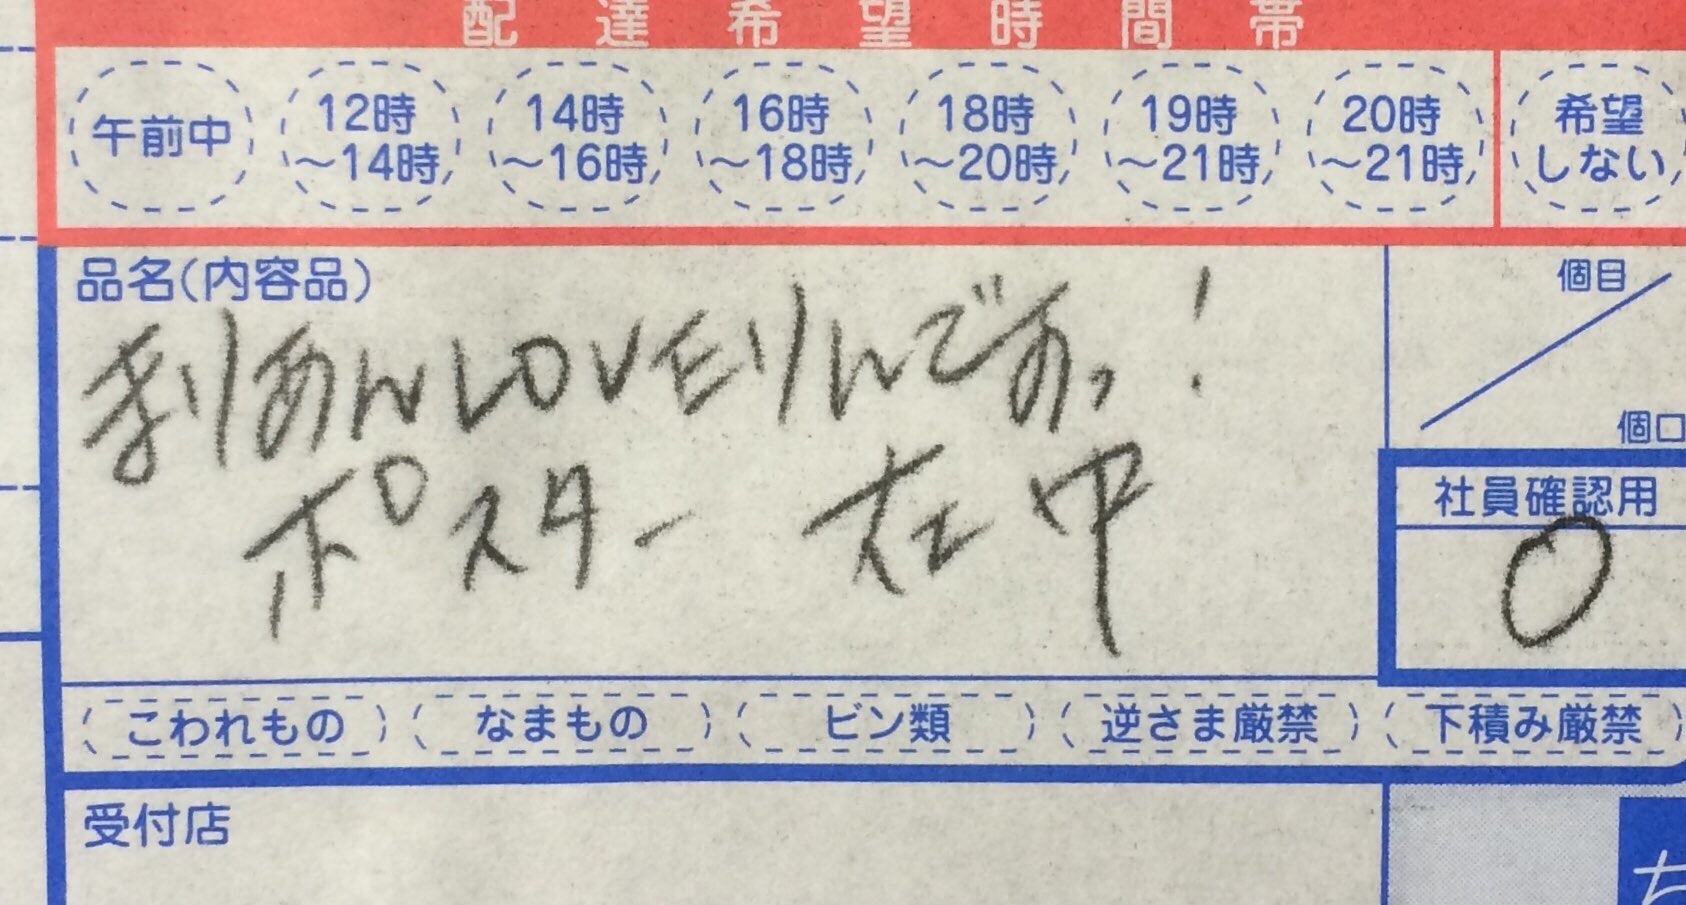 配達希望時間帯
午前中
12時
～14時
14時
～16時
16時
～18時
18時
～20時
19時
～21時
20時
～21時
希望
しない
品名(内容品)
まりあんLOVEりんであっ!
ポスター 在中
個目
個口
社員確認用
こわれもの
なまもの
ビン類
逆さま厳禁
下積み厳禁
受付店